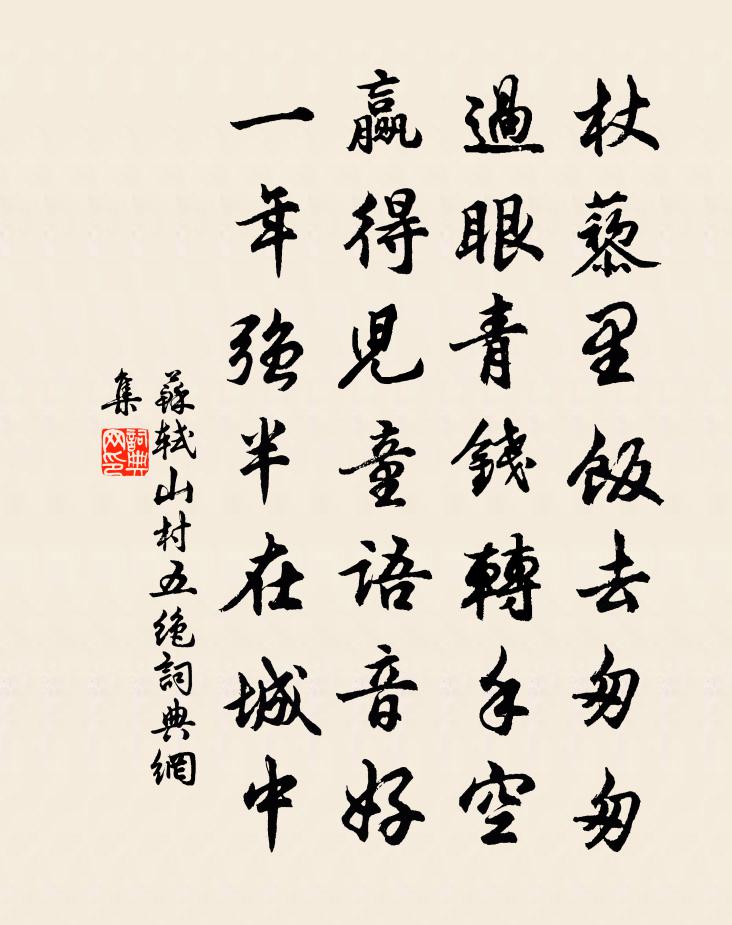 杖藜里飯去匆匆
過眼青錢轉手空
贏得兒童語音好
一年強半在城中
蘇軾山村五絕詞典網
集
詞典
网印